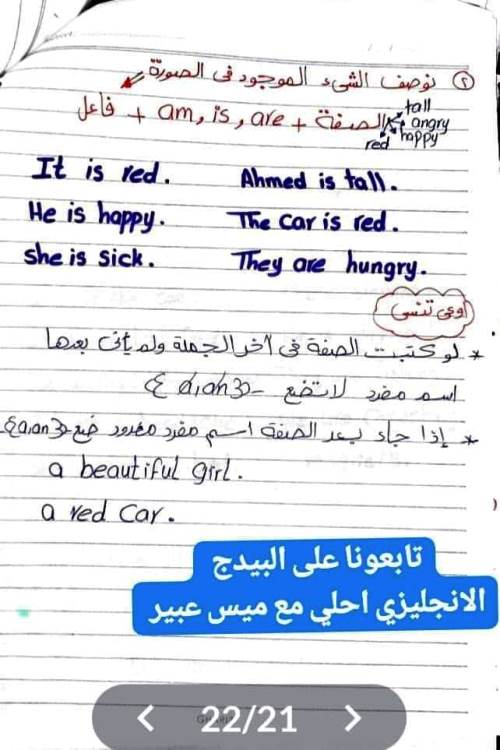 ٢ نوصف الشيء الموجود فى الصورة
فاعل + am, is, are + الصفة
tall
angry
happy
red
It is red.
Ahmed is tall.
He is happy.
The car is red.
she is sick.
They are hungry.
اوعى تنسى
* لو كتبت الصفة فى آخر الجملة ولم يأتى بعدها
اسم مفرد لا تضع - {a, an}
* إذا جاء بعد الصفة اسم مفرد معدود ضع {a, an}
a beautiful girl.
a red car.
تابعونا على البيدج
الانجليزي احلي مع ميس عبير
22/21